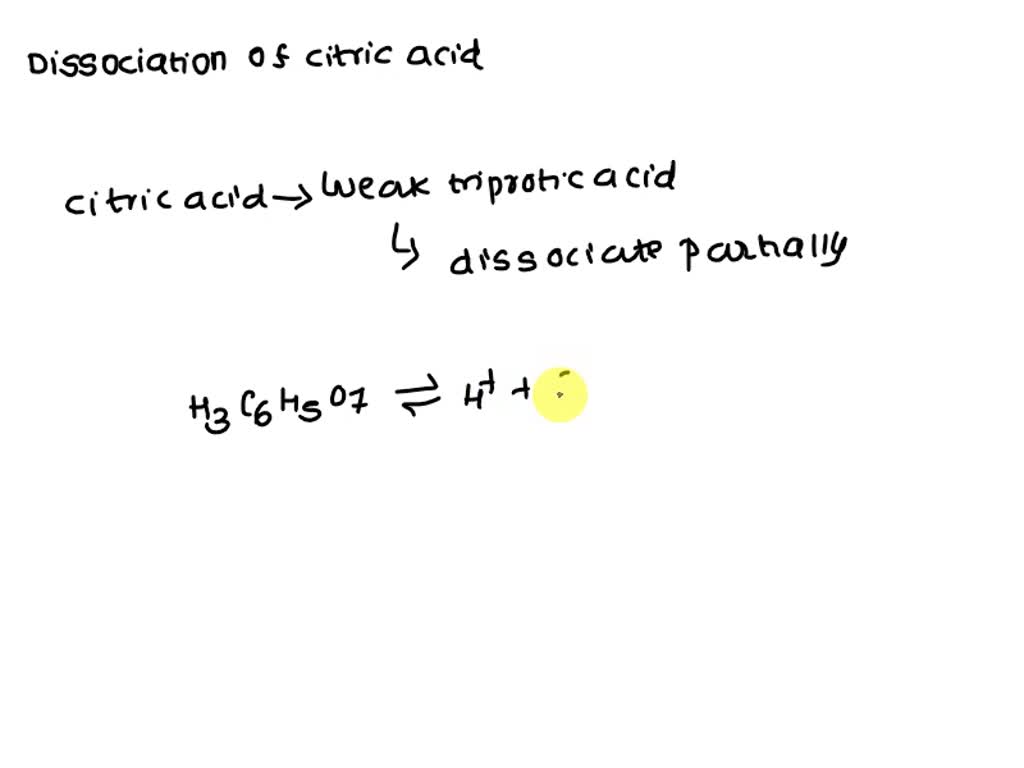 Dissociation of citric acid
citric acid → weak triprotic acid
↳ dissociate partially
H₃C₆H₅O₇ ⇌ H⁺ +